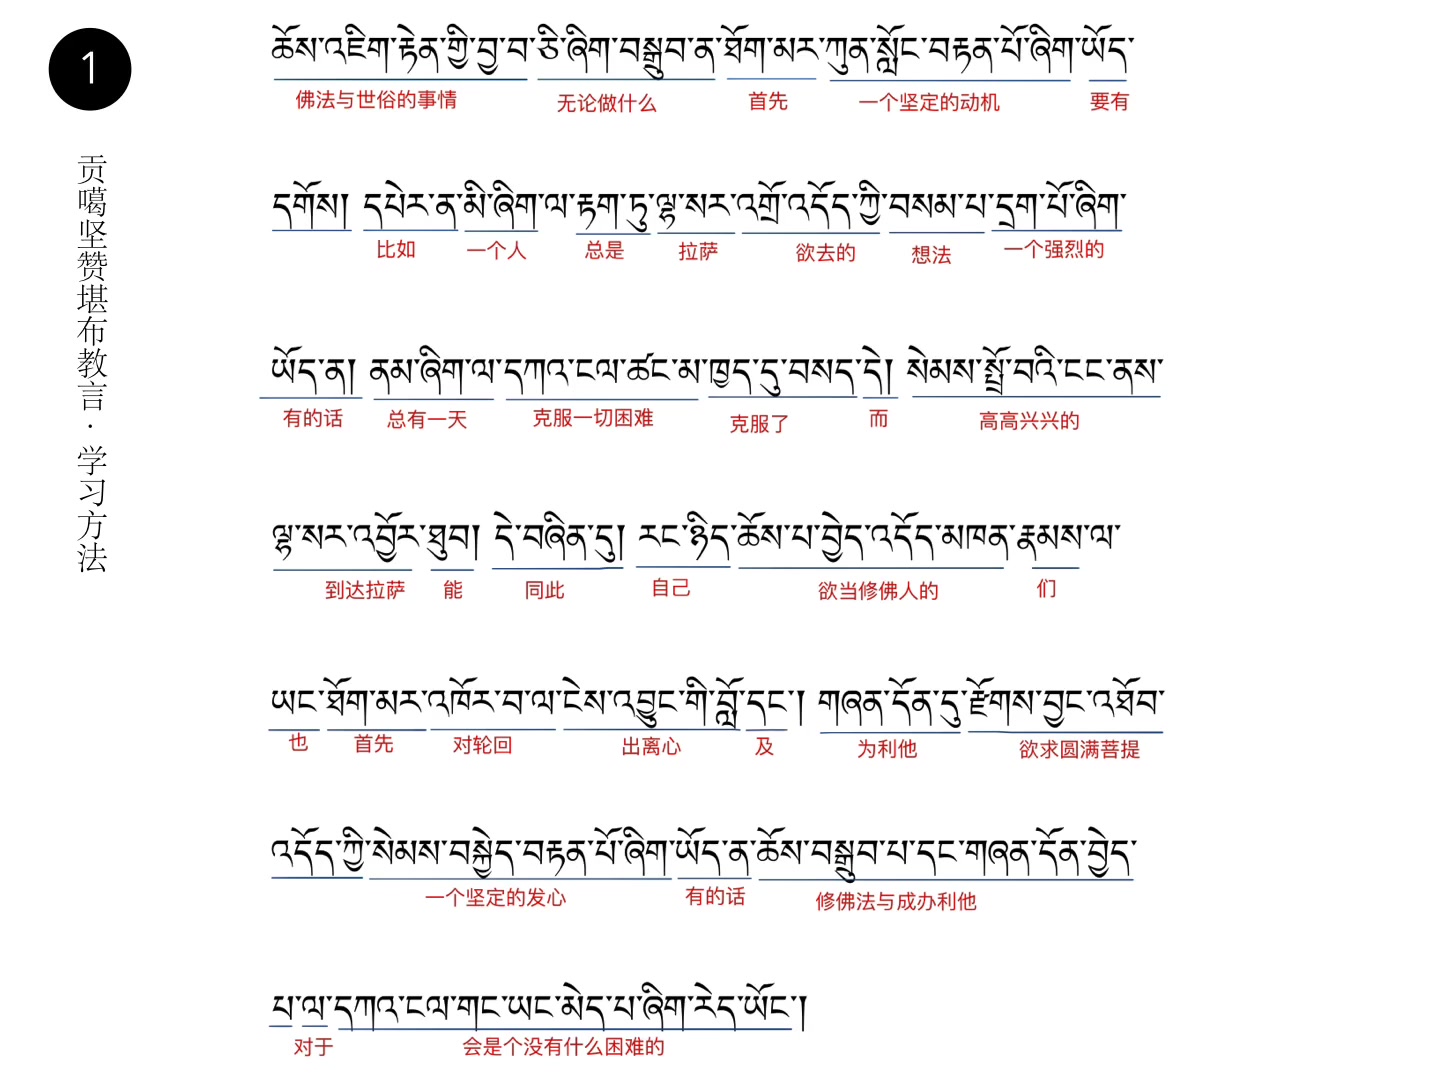 1
贡噶坚赞堪布教言·学习方法
ཆོས་འཇིག་རྟེན་གྱི་བྱ་བ་ཅི་ཞིག་བསྒྲུབ་ན་ཐོག་མར་ཀུན་སློང་བརྟན་པོ་ཞིག་ཡོད་
佛法与世俗的事情 无论做什么 首先 一个坚定的动机 要有
དགོས། དཔེར་ན་མི་ཞིག་ལ་རྟག་ཏུ་ལྷ་སར་འགྲོ་འདོད་ཀྱི་བསམ་པ་དྲག་པོ་ཞིག་
比如 一个人 总是 拉萨 欲去的 想法 一个强烈的
ཡོད་ན། ནམ་ཞིག་ལ་དཀའ་ངལ་ཚང་མ་ཁྱད་དུ་བསད་དེ། སེམས་སྤྲོ་བའི་ངང་ནས་
有的话 总有一天 克服一切困难 克服了 而 高高兴兴的
ལྷ་སར་འབྱོར་ཐུབ། དེ་བཞིན་དུ། རང་ཉིད་ཆོས་པ་བྱེད་འདོད་མཁན་རྣམས་ལ་
到达拉萨 能 同此 自己 欲当修佛人的 们
ཡང་ཐོག་མར་འཁོར་བ་ལ་ངེས་འབྱུང་གི་བློ་དང་། གཞན་དོན་དུ་རྫོགས་བྱང་འཐོབ་
也 首先 对轮回 出离心 及 为利他 欲求圆满菩提
འདོད་ཀྱི་སེམས་བསྐྱེད་བརྟན་པོ་ཞིག་ཡོད་ན་ཆོས་བསྒྲུབ་པ་དང་གཞན་དོན་བྱེད་
一个坚定的发心 有的话 修佛法与成办利他
པ་ལ་དཀའ་ངལ་གང་ཡང་མེད་པ་ཞིག་རེད་ཡོང་།
对于 会是个没有什么困难的